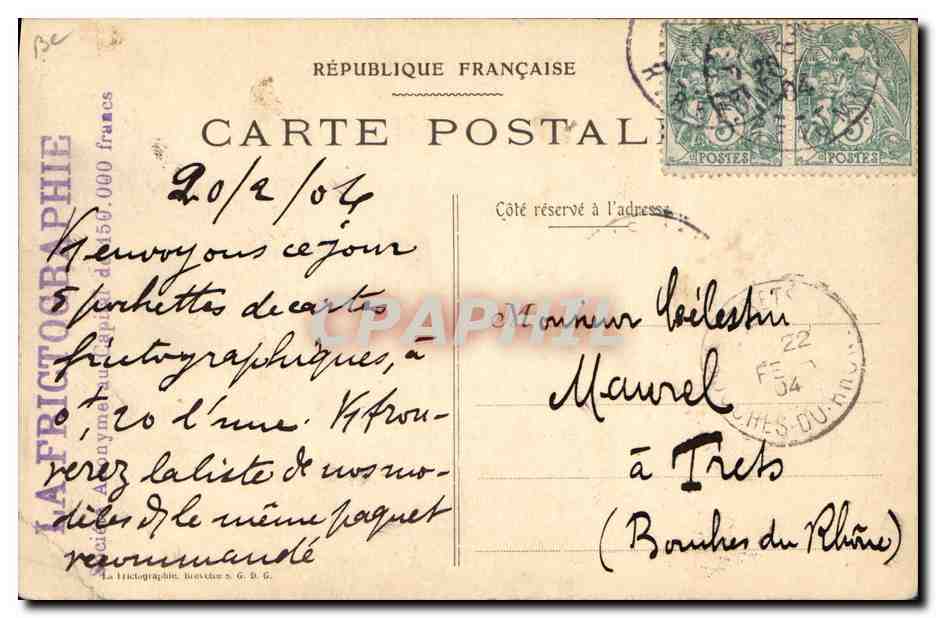 Bc
RÉPUBLIQUE FRANÇAISE
CARTE POSTALE
POSTES
POSTES
LA FRICTOGRAPHIE
Société Anonyme au capital de 150.000 francs
20/2/04
envoyons ce jour
5 pochettes de cartes
frictographiques, à
0f, 20 l'une. Vs trou-
verez la liste de nos mo-
dèles ds le même paquet
recommandé
La Frictographie, Brevetée S. G. D. G.
Côté réservé à l'adresse
Monsieur Célestin
Maurel
à Trets
(Bouches du Rhône)
TRETS
22
FEVR
04
BOUCHES-DU-RHONE
CPAPHIL